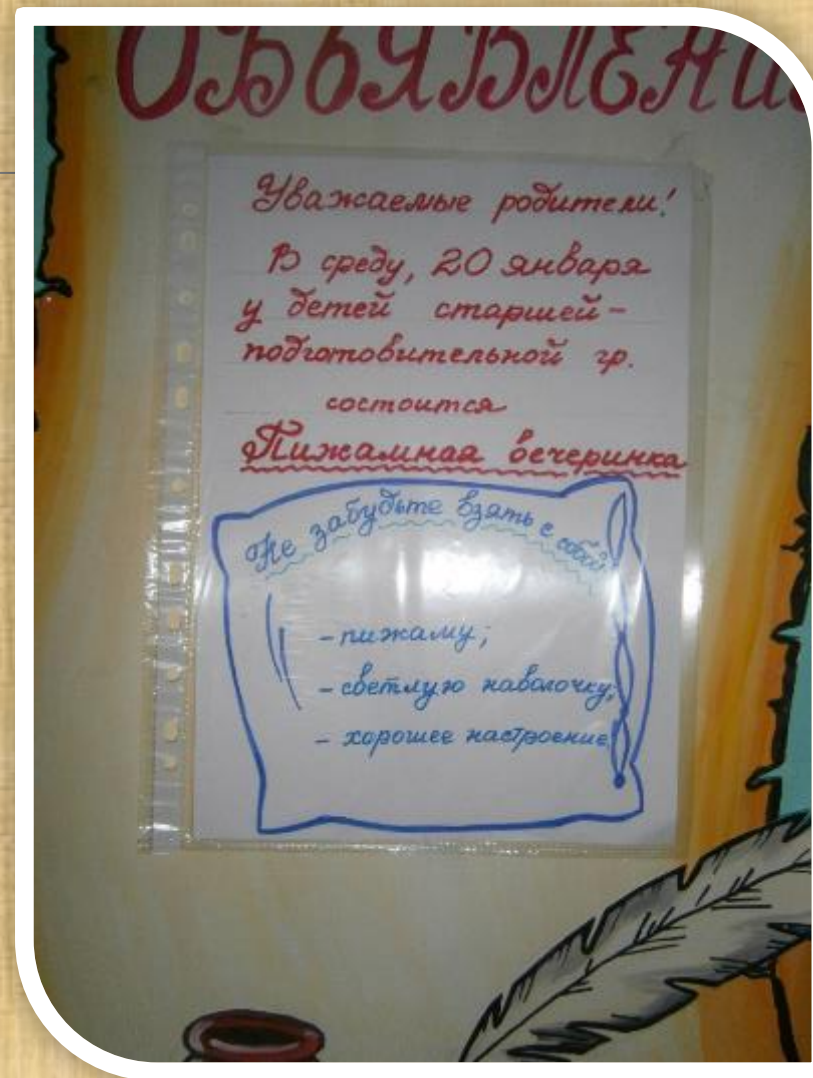 ОБЪЯВЛЕНИЯ
Уважаемые родители!
В среду, 20 января
у детей старшей-
подготовительной гр.
состоится
Пижамная вечеринка
Не забудьте взять с собой
- пижаму;
- светлую наволочку;
- хорошее настроение